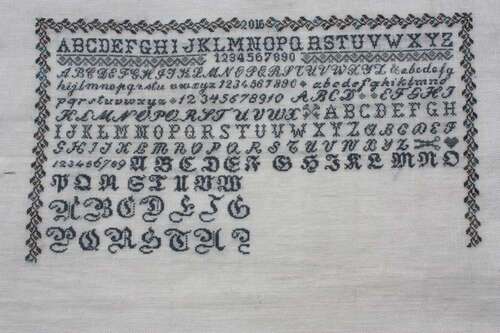 2016
ABCDEFGHIJKLMNOPQRSTUVWXYZ
1234567890
ABCDEFGHIJKLMNOPQRSTUVWXYZ abcdefg
hijklmnopqrstu vwxyz1234567890 abcdefghiklmno
pqrstuvwxyz 1234567890 ABCDEFGHI
KLMNOPQRSTUVWX ABCDEFGH
IJKLMNOPQRSTUVWXYZ ABCDEFG
HIJKLMNOPQRSTUVWXYZ
123456789 ABCDEFGHIKLMNO
PQRSTUVW
ABCDEFG
PQRSTU